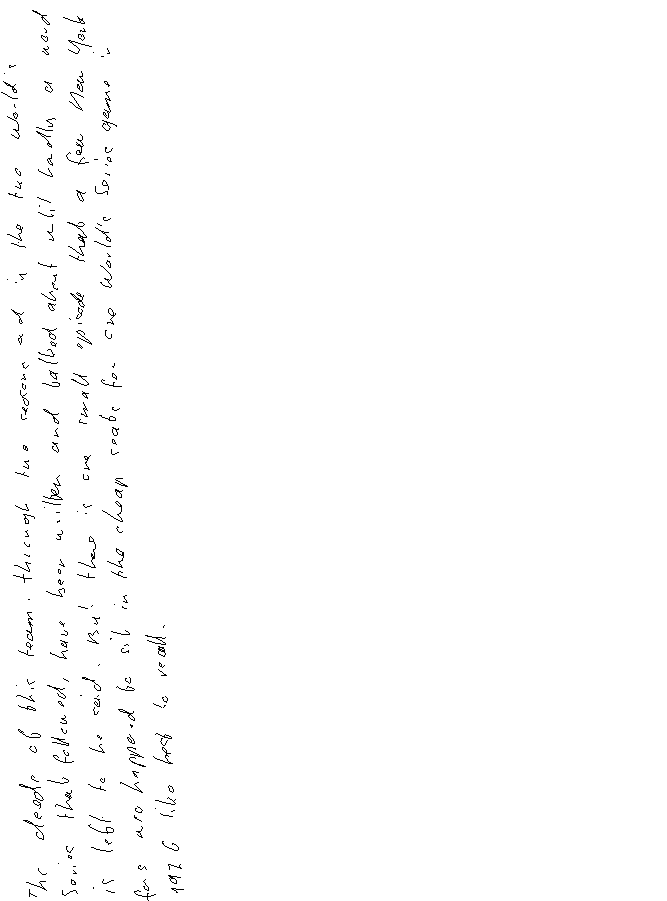 The deeds of this team, through two seasons ad in the two World's
Series that followed, have been written and talked about until hardly a word
is left to be said. But there is one small episode that a few New York
fans who happened to sit in the cheap seats for one World's Series game in
1926 like best to recall.